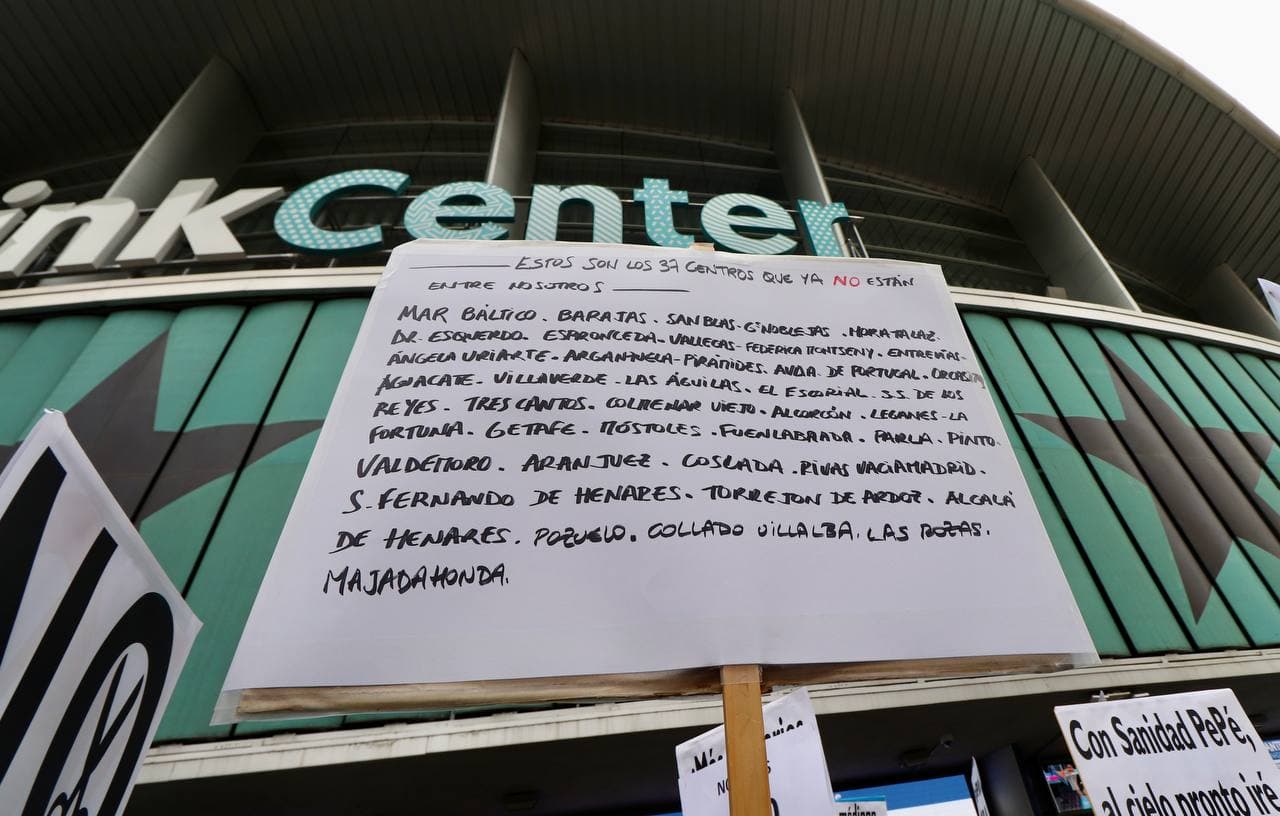 ink Center
ESTOS SON LOS 37 CENTROS QUE YA NO ESTÁN
ENTRE NOSOTROS
MAR BÁLTICO. BARAJAS. SAN BLAS-G.NOBLEJAS. MORATALAZ.
DR. ESQUERDO. ESPRONCEDA. VALLECAS-FEDERICA MONTSENY. ENTREVÍAS-
ÁNGELA URIARTE. ARGANZUELA-PIRÁMIDES. AVDA. DE PORTUGAL. ORCASITAS
AGUACATE. VILLAVERDE-LAS ÁGUILAS. EL ESCORIAL. S.S. DE LOS
REYES. TRES CANTOS. COLMENAR VIEJO. ALCORCÓN. LEGANES-LA
FORTUNA. GETAFE. MÓSTOLES. FUENLABRADA. PARLA. PINTO.
VALDEMORO. ARANJUEZ. COSLADA. RIVAS VACIAMADRID.
S. FERNANDO DE HENARES. TORREJON DE ARDOZ. ALCALÁ
DE HENARES. POZUELO. COLLADO VILLALBA. LAS ROZAS.
MAJADAHONDA.
Con Sanidad PePé,
al cielo pronto iré